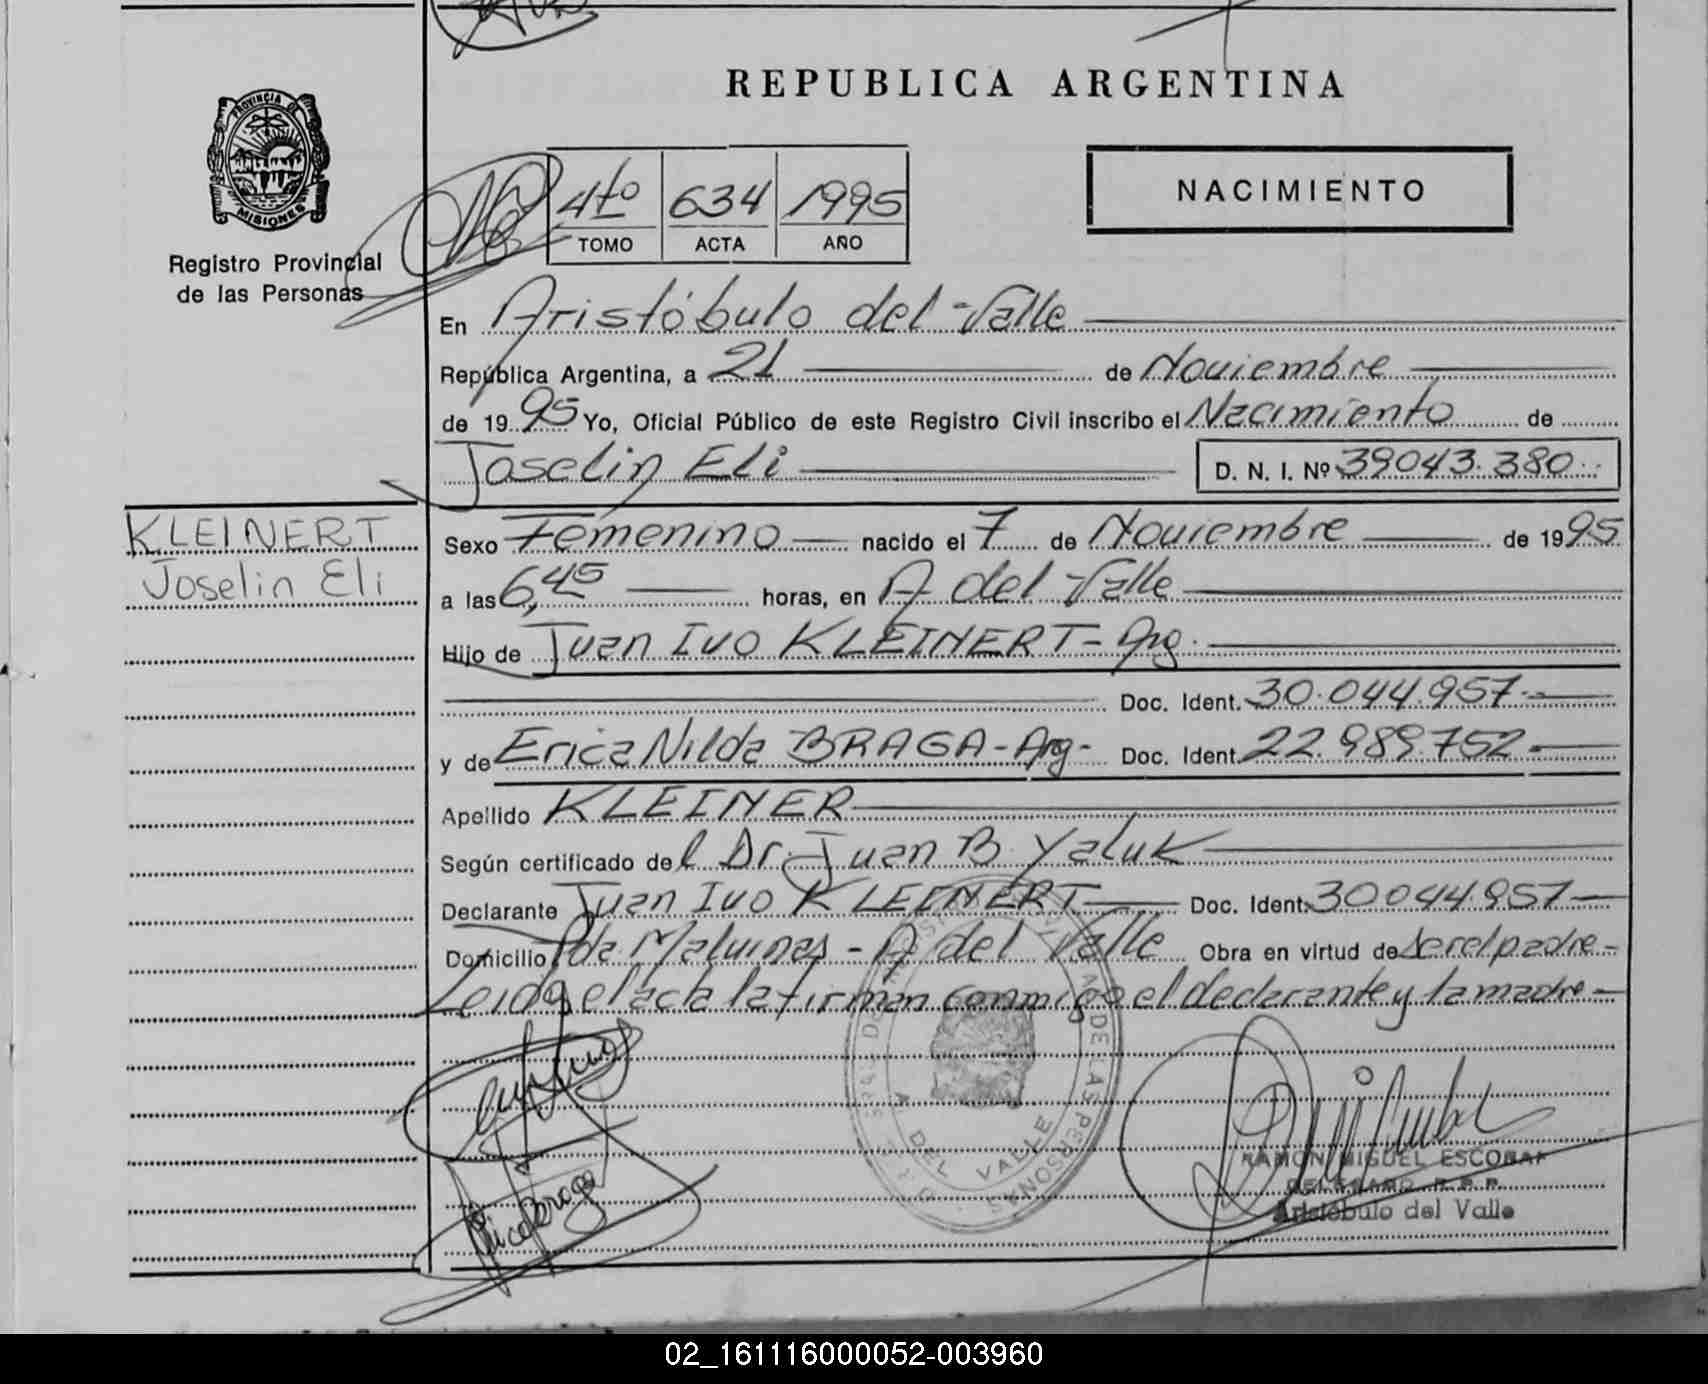 REPUBLICA ARGENTINA
PROVINCIA DE
MISIONES
Registro Provincial
de las Personas
4to 634 1995
TOMO ACTA AÑO
NACIMIENTO
En Aristóbulo del Valle
República Argentina, a 21 de Noviembre
de 1995 Yo, Oficial Público de este Registro Civil inscribo el Nacimiento de
Joselin Eli D. N. I. Nº 39043.380
KLEINERT
Joselin Eli
Sexo Femenino nacido el 7 de Noviembre de 1995
a las 6,45 horas, en A del Valle
Hijo de Juan Ivo KLEINERT - Arg.
Doc. Ident. 30.044.957
y de Erica Nilda BRAGA - Arg - Doc. Ident. 22.989.752
Apellido KLEINER
Según certificado del Dr. Juan B. Yaluk
Declarante Juan Ivo KLEINERT Doc. Ident. 30044.957
Domicilio Pda Malvinas - A del Valle Obra en virtud de ser el padre.-
Leida el acta la firman conmigo el declarante y la madre -
DE LAS PERSONAS
A DEL VALLE
Erica Braga
RAMON MIGUEL ESCOBAR
DELEGADO R.P.P.
Aristóbulo del Valle
02_161116000052-003960